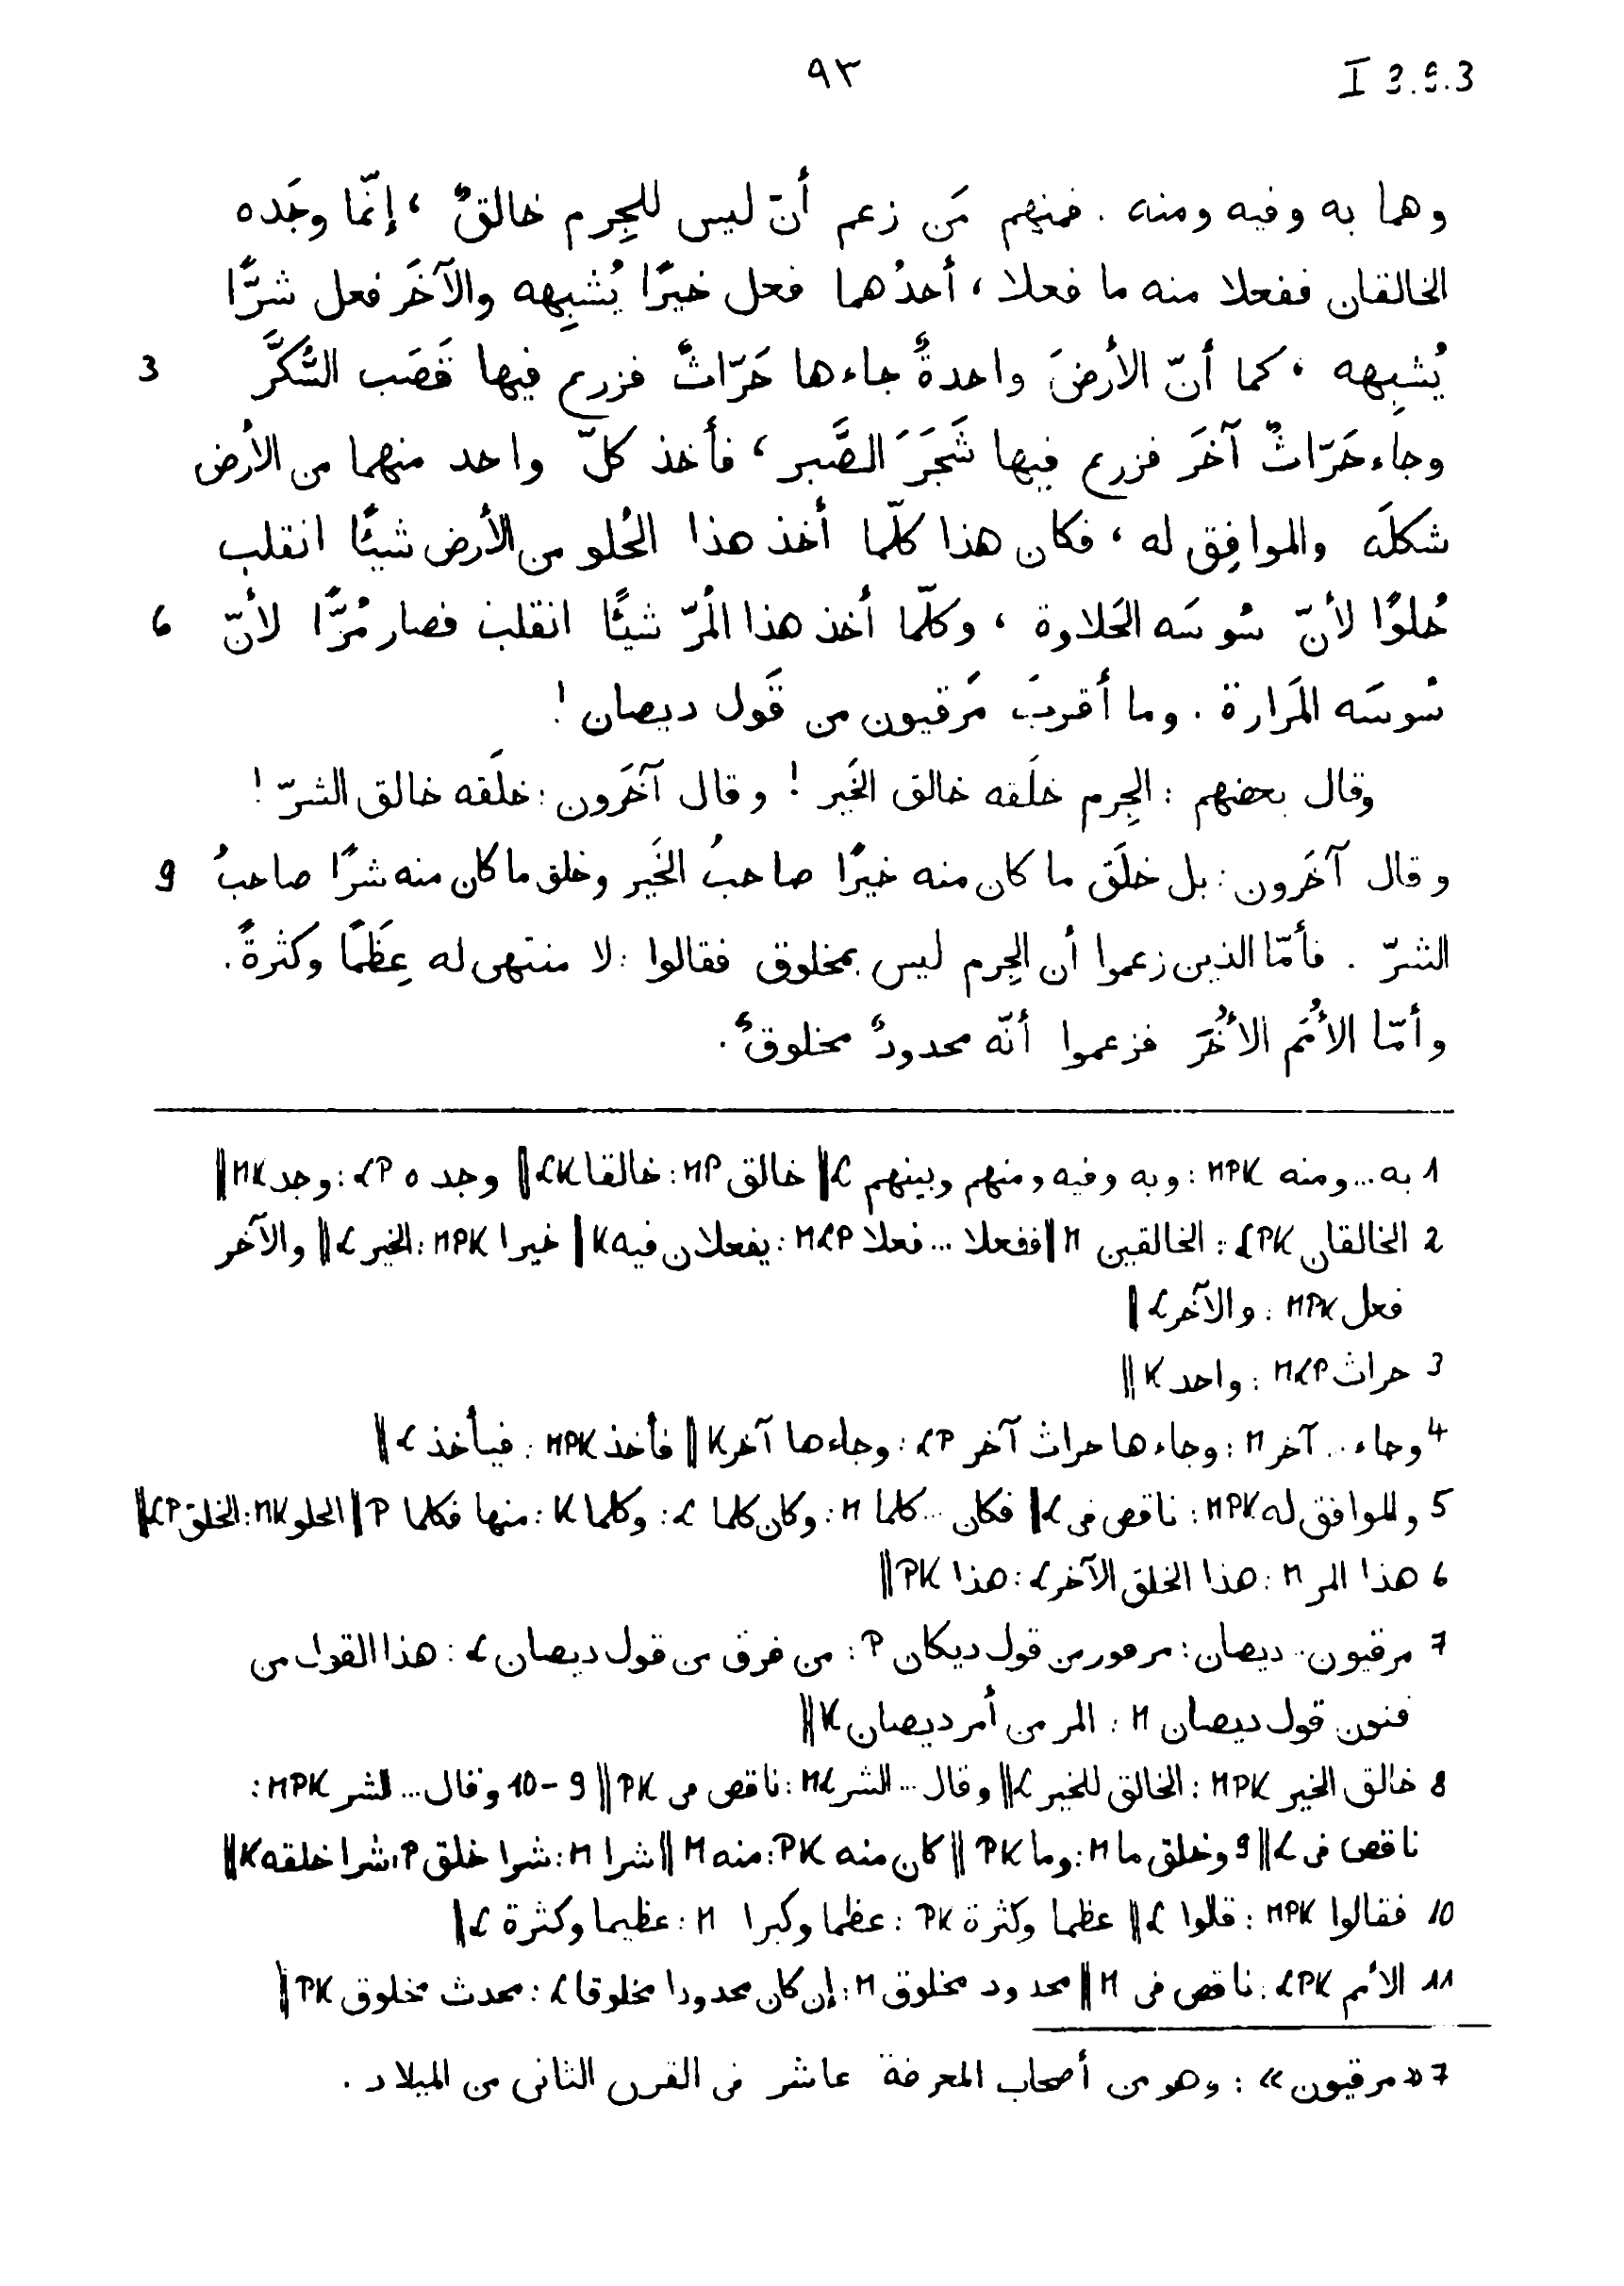 ٩٣
I 3.5.3
وهما به وفيه ومنه . فمنهم مَن زعم أنّ ليس للجِرم خالقٌ ، إنّما وجَده
الخالقان ففعلا منه ما فعلا ، أحدُهما فعل خيرًا يُشبِهه والآخَر فعل شرًّا
يُشبِهه ، كما أنّ الأرضَ واحدةٌ جاءها حَرّاثٌ فزرع فيها قَصَب السُّكَّر 3
وجاء حَرّاثٌ آخَر فزرع فيها شَجَرَ الصَّبر ، فأخذ كلّ واحد منهما من الأرض
شكلَه والموافِق له ، فكان هذا كلّما أخذ هذا الحُلو من الأرض شيئًا انقلب
حُلوًا لأنّ سُوسَه الحَلاوة ، وكلّما أخذ هذا المُرّ شيئًا انقلب فصار مُرًّا لأنّ 6
سُوسَه المَرارة . وما أقربَ مَرقيون من قَول ديصان !
وقال بعضهم : الجِرم خلَقه خالق الخَير ! وقال آخَرون : خلَقه خالق الشرّ !
وقال آخَرون : بل خلَق ما كان منه خيرًا صاحبُ الخَير وخلق ما كان منه شرًا صاحبُ 9
الشرّ . فأمّا الذين زعموا أن الجِرم ليس بمخلوق فقالوا : لا منتهى له عِظَمًا وكثرةً .
وأمّا الأُمَم الأُخَر فزعموا أنّه محدودٌ مخلوقٌ .
1 به ... ومنه MPK : وبه وفيه ومنهم وبينهم L || خالق MP : خالقا LK || وجده LP : وجد MK ||
2 الخالقان LPK : الخالقين M || ففعلا ... فعلا MLP : يفعلان فيه K || خيرا MPK : الخير L || والآخر
فعل MPK : والآخر L ||
3 حراث MLP : واحد K ||
4 وجاء ... آخر M : وجاءها حراث آخر LP : وجاءها آخر K || فأخذ MPK : فيأخذ L ||
5 والموافق له MPK : ناقص فى L || فكان ... كلما M : وكان كلما L : وكلما K : منها فكلما P || الحلو MK : الخلق LP ||
6 هذا المر M : هذا الخلق الآخر L : هذا PK ||
7 مرقيون ... ديصان : من قول ديكان P : من فرق من قول ديصان L : هذا القول من
فنون قول ديصان M : المر من أمر ديصان K ||
8 خالق الخير MPK : الخالق للخير L || وقال ... الشر ML : ناقص فى PK || 9 – 10 وقال ... الشر MPK :
ناقص فى L || 9 وخلق ما M : وما PK || كان منه PK : منه M || شرا M : شرا خلق P ، شرا خلقه K ||
10 فقالوا MPK : قالوا L || عظما وكثرة PK : عظما وكبرا M : عظيما وكثرة L ||
11 الأمم LPK : ناقص فى M || محدود مخلوق M : إن كان محدودا مخلوقا L : محدث مخلوق PK ||
7 « مرقيون » : وهو من أصحاب المعرفة عاش فى القرن الثانى من الميلاد .